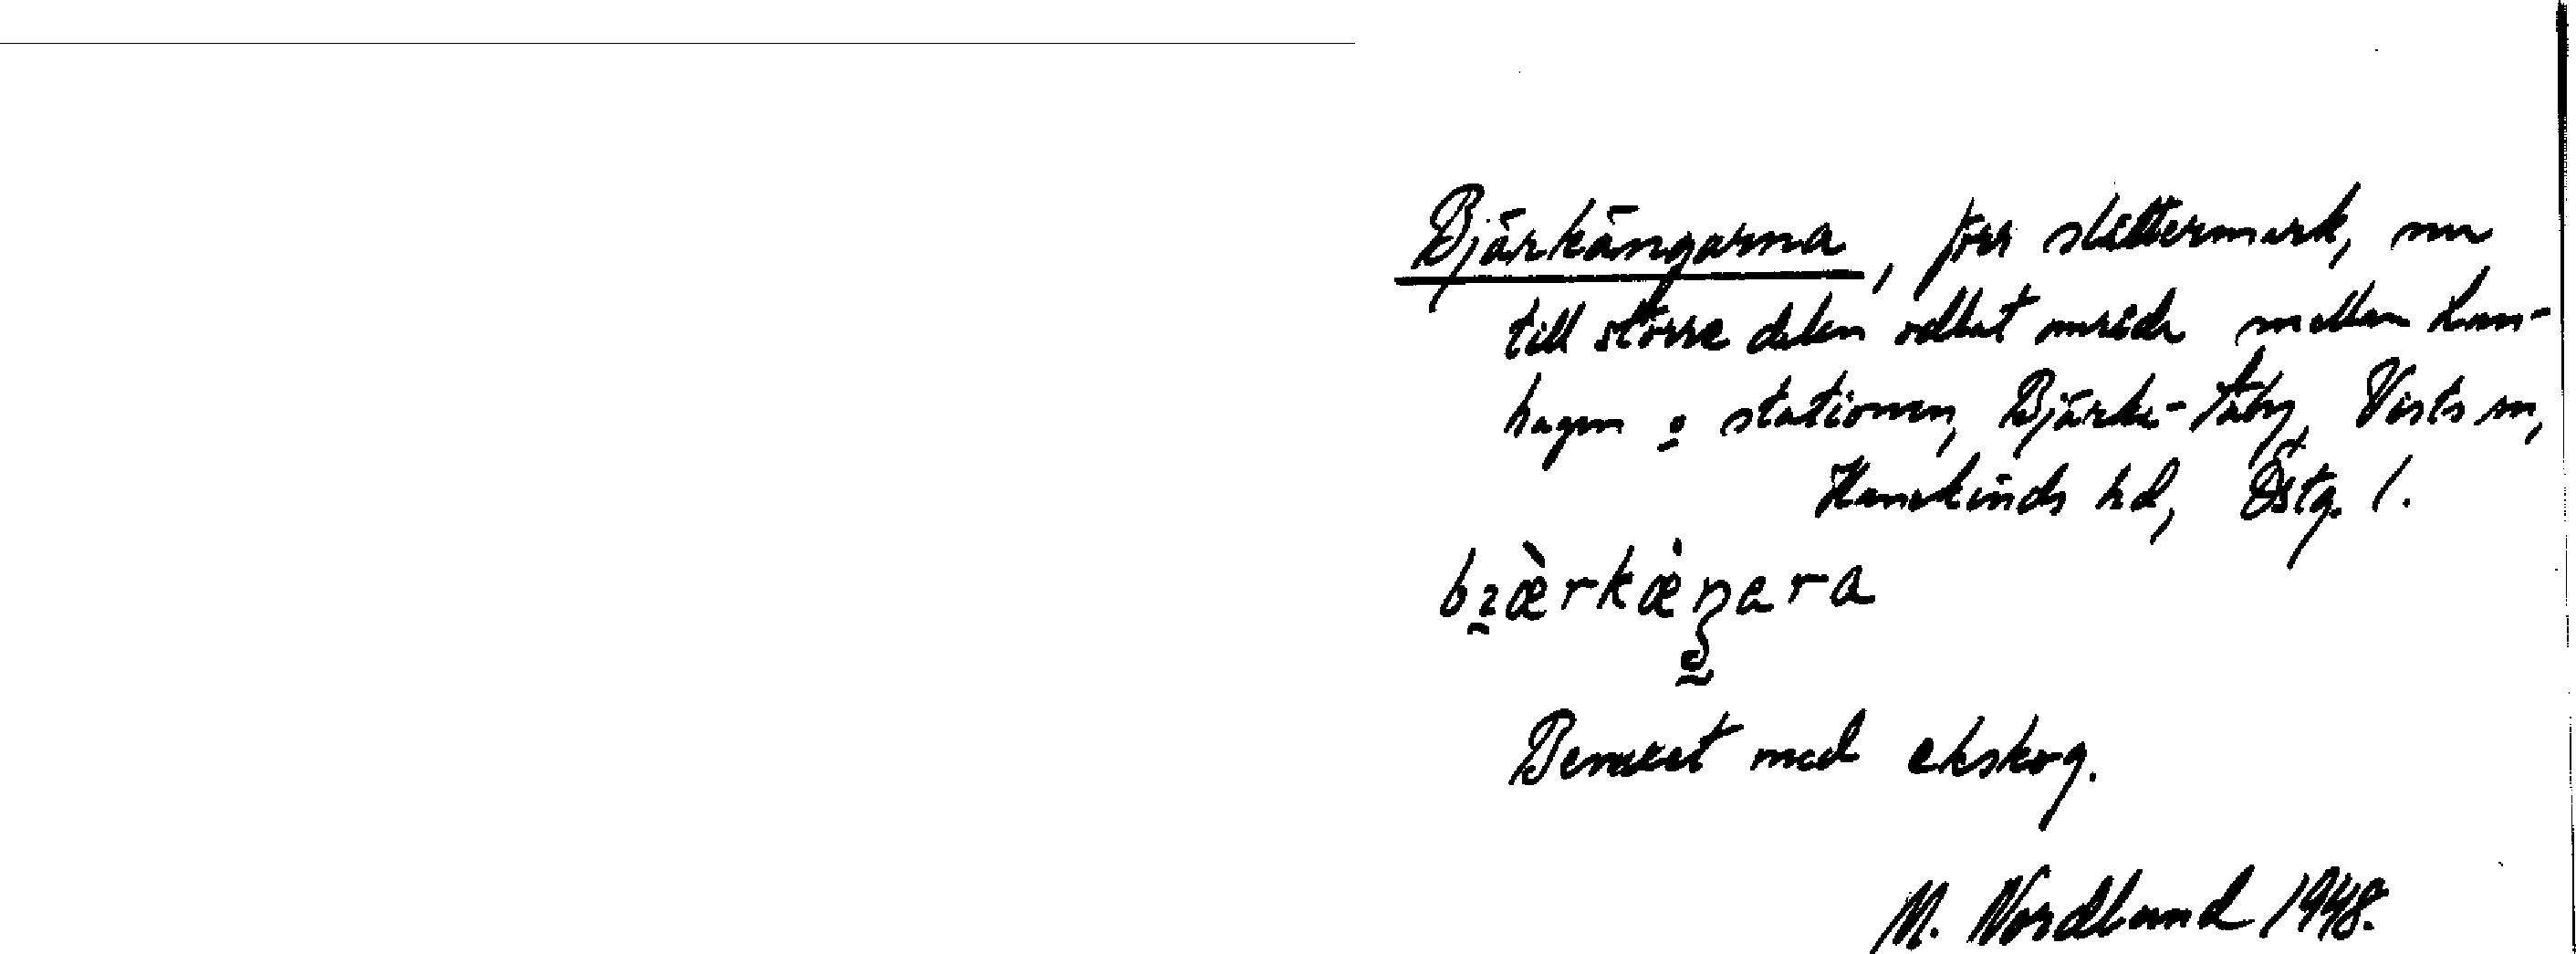 Bjärkängarna, förr slåttermark, nu
till större delen odlat område mellan Lun-
hagen o stationen, Bjärka-Säby, Vists sn,
Hanekinds hd, Östg. l.
bɩæ̀rkæ̀ŋara
Bevuxet med ekskog.
M. Nordlund 1948.